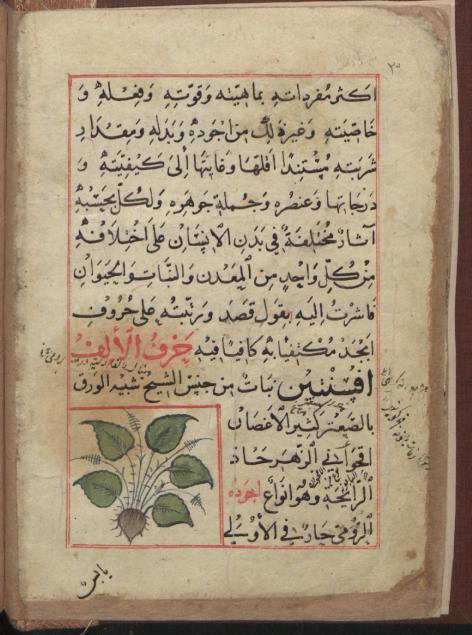 اكثر مفرداته بماهيته وقوته وفعله و
خاصيته وغير ذلك من اجوده وبدله ومقدار
شربته مستندا اقلها وغايتها الى كيفيته و
درجاتها وعنصره وجملة جوهره ولكل بحسبه
آثار مختلفة في بدن الانسان على اختلافه
من كل واحد من المعدن والنبات والحيوان
فاشرت اليه بقول قصد ورتبته على حروف
ابجد مكتفيا به كافيا فيه حرف الألف
افسنتين نبات من جنس الشيح شبيه الورق
بالصعتر كثير الاغصان
اقحواني الزهر حاد
الرايحة وهو انواع اجوده
الرومي حار في الأولى
يابس